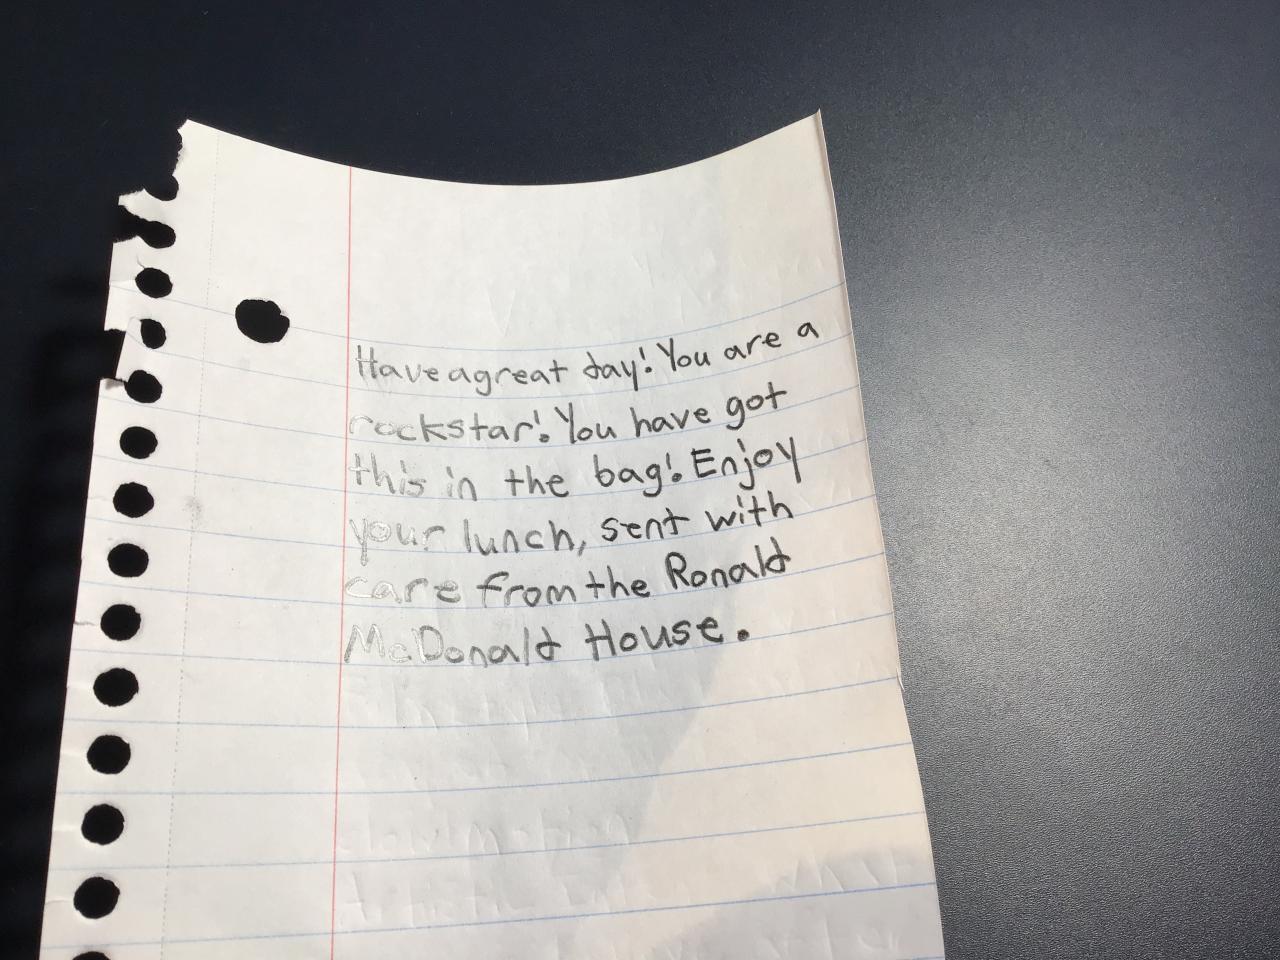 Have a great day! You are a
rockstar! You have got
this in the bag! Enjoy
your lunch, sent with
care from the Ronald
McDonald House.